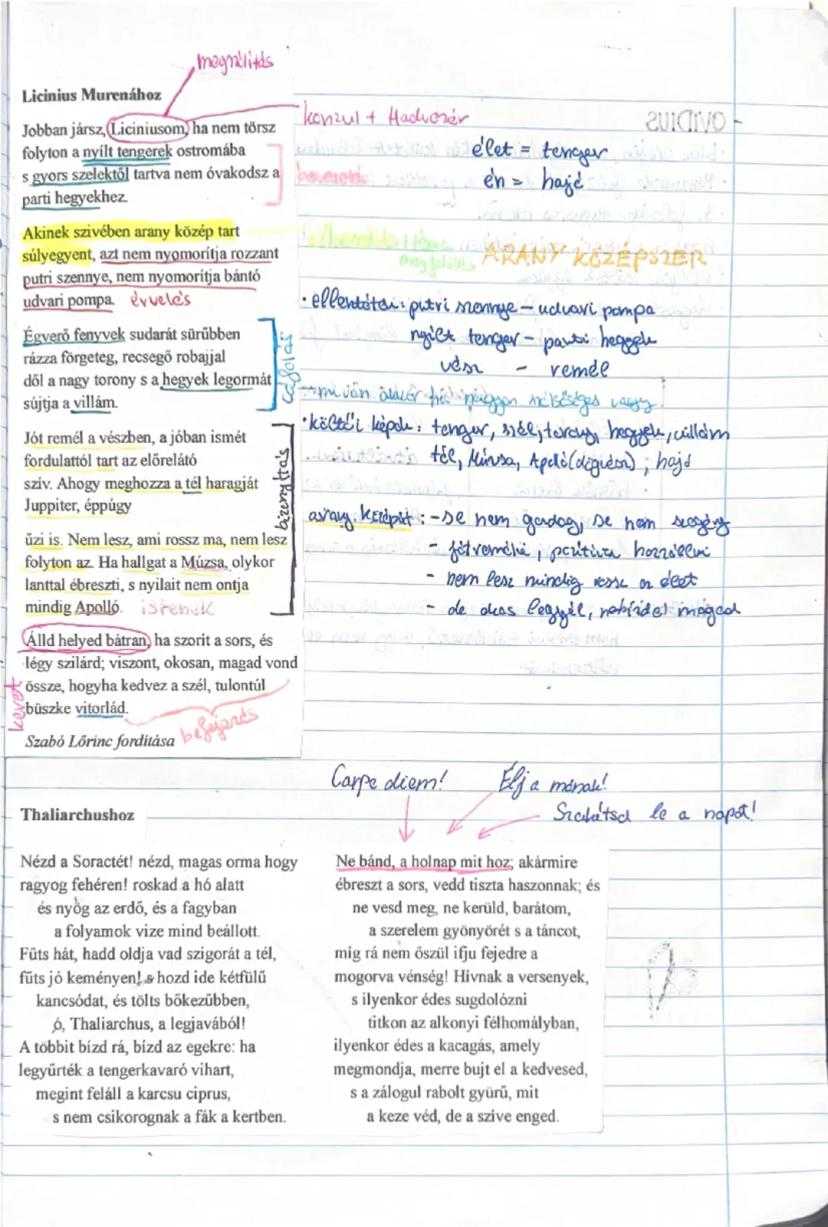 megszólítás
Licinius Murenához
Jobban jársz, Liciniusom, ha nem törsz
folyton a nyílt tengerek ostromába
s gyors szelektől tartva nem óvakodsz a
parti hegyekhez.
konzul + Hadvezér
bevezetés
élet = tenger
én = hajó
OVIDIUS
Akinek szivében arany közép tart
súlyegyent, azt nem nyomorítja rozzant
putri szennye, nem nyomorítja bántó
udvari pompa. érvelés
ARANY KÖZÉPSZER
Égverő fenyvek sudarát sürűbben
rázza förgeteg, recsegő robajjal
dől a nagy torony s a hegyek legormát
sújtja a villám.
cáfolás
• ellentétei: putri szennye – udvari pompa
nyílt tenger – parti hegyek
vész – remél
Jót remél a vészben, a jóban ismét
fordulattól tart az előrelátó
szív. Ahogy meghozza a tél haragját
Juppiter, éppúgy
űzi is. Nem lesz, ami rossz ma, nem lesz
folyton az. Ha hallgat a Múzsa, olykor
lanttal ébreszti, s nyilait nem ontja
mindig Apolló. istenek
bizonyítás
• költői képek: tenger, szél, torony, hegyek, villám
tél, Múzsa, Apolló, hajó
arany középút: - se nem gazdag, se nem szegény
- jót remélni, pozitívan hozzáállni
- nem lesz mindig rossz az élet
- de okos legyél, ne bízd el magad
Álld helyed bátran, ha szorit a sors, és
légy szilárd; viszont, okosan, magad vond
össze, hogyha kedvez a szél, tulontúl
büszke vitorlád.
keret
befejezés
Szabó Lőrinc fordítása
Carpe diem! Élj a mának!
Szakítsd le a napot!
Thaliarchushoz
Nézd a Soractét! nézd, magas orma hogy
ragyog fehéren! roskad a hó alatt
és nyög az erdő, és a fagyban
a folyamok vize mind beállott.
Fűts hát, hadd oldja vad szigorát a tél,
fűts jó keményen! s hozd ide kétfülű
kancsódat, és tölts bőkezűbben,
ó, Thaliarchus, a legjavából!
A többit bízd rá, bízd az egekre: ha
legyűrték a tengerkavaró vihart,
megint feláll a karcsu ciprus,
s nem csikorognak a fák a kertben.
Ne bánd, a holnap mit hoz; akármire
ébreszt a sors, vedd tiszta haszonnak; és
ne vesd meg, ne kerüld, barátom,
a szerelem gyönyörét s a táncot,
míg rá nem őszül ifju fejedre a
mogorva vénség! Hívnak a versenyek,
s ilyenkor édes sugdolózni
titkon az alkonyi félhomályban,
ilyenkor édes a kacagás, amely
megmondja, merre bujt el a kedvesed,
s a zálogul rabolt gyürű, mit
a keze véd, de a szive enged.